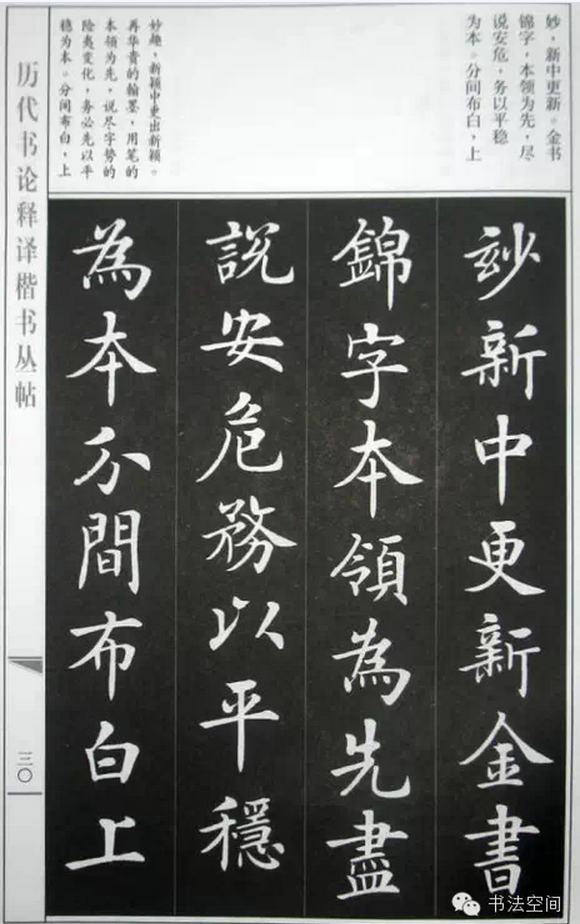 妙，新中更新。金书
锦字，本领为先，尽
说安危，务以平稳
为本。分间布白，上
妙趣，新颖中更出新颖。
再华贵的翰墨，用笔的
本领为先，说尽字势的
险夷变化，务必先以平
稳为本。分间布白，上
历代书论释译楷书丛帖
三〇
玅新中更新金書
錦字本領為先盡
説安危務以平穩
為本分間布白上
书法空间